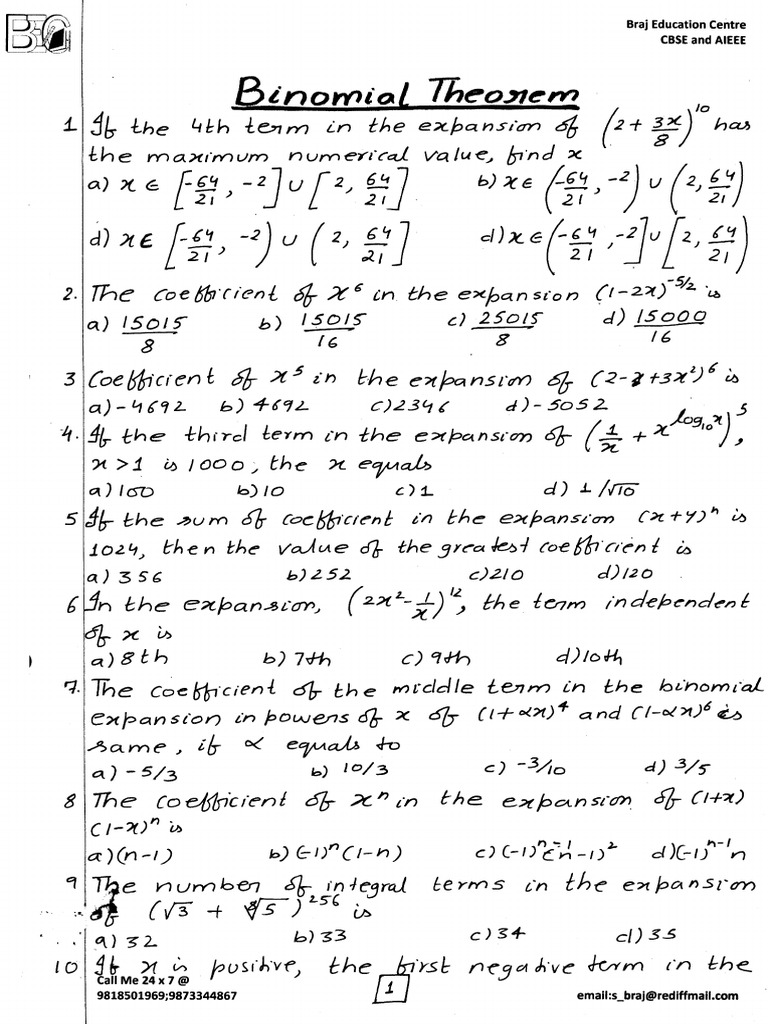 BEC
Braj Education Centre
CBSE and AIEEE
Binomial Theorem
1 If the 4th term in the expansion of (2 + 3x/8)^10 has
the maximum numerical value, find x
a) x ∈ [-64/21, -2] ∪ [2, 64/21] b) x ∈ (-64/21, -2) ∪ (2, 64/21)
d) x ∈ [-64/21, -2) ∪ (2, 64/21] d) x ∈ (-64/21, -2] ∪ [2, 64/21)
2. The coefficient of x^6 in the expansion (1-2x)^-5/2 is
a) 15015/8 b) 15015/16 c) 25015/8 d) 15000/16
3 Coefficient of x^5 in the expansion of (2-x+3x^2)^6 is
a) -4692 b) 4692 c) 2346 d) -5052
4. If the third term in the expansion of (1/x + x^log_10 x)^5,
x>1 is 1000, the x equals
a) 100 b) 10 c) 1 d) 1/√10
5 If the sum of coefficient in the expansion (x+y)^n is
1024, then the value of the greatest coefficient is
a) 356 b) 252 c) 210 d) 120
6 In the expansion, (2x^2 - 1/x)^12, the term independent
of x is
a) 8th b) 7th c) 9th d) 10th
7. The coefficient of the middle term in the binomial
expansion in powers of x of (1+αx)^4 and (1-αx)^6 is
same, if α equals to
a) -5/3 b) 10/3 c) -3/10 d) 3/5
8 The coefficient of x^n in the expansion of (1+x)
(1-x)^n is
a) (n-1) b) (-1)^n (1-n) c) (-1)^n-1 (n-1)^2 d) (-1)^n-1 n
9 The number of integral terms in the expansion
of (√3 + ⁸√5)^256 is
a) 32 b) 33 c) 34 d) 35
10 If x is positive, the first negative term in the
Call Me 24 x 7 @
9818501969;9873344867
1
email:s_braj@rediffmail.com